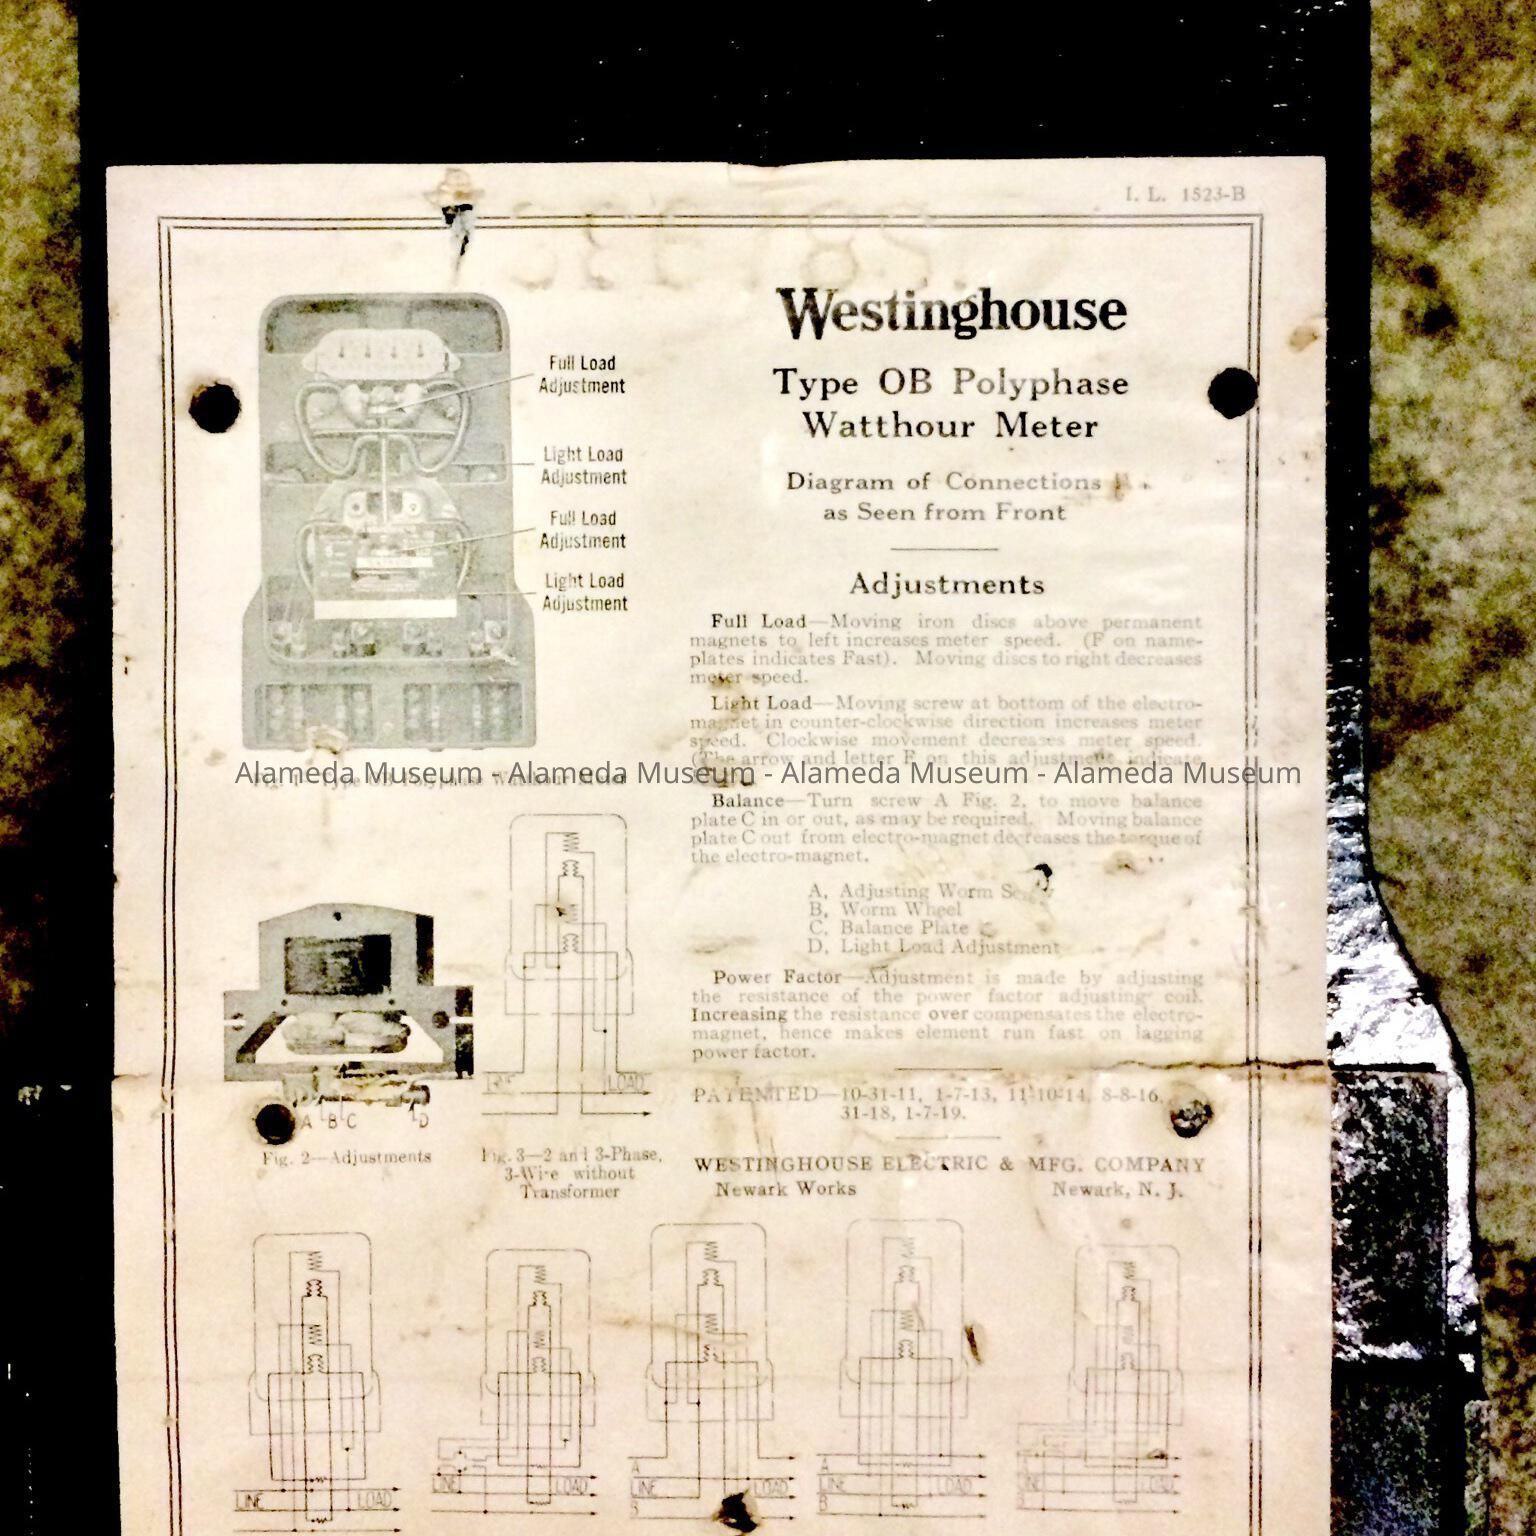 I. L. 1523-B
Westinghouse
Type OB Polyphase
Watthour Meter
Diagram of Connections
as Seen from Front
Full Load
Adjustment
Light Load
Adjustment
Full Load
Adjustment
Light Load
Adjustment
Adjustments
Full Load—Moving iron discs above permanent
magnets to left increases meter speed. (F on name-
plates indicates Fast). Moving discs to right decreases
meter speed.
Light Load—Moving screw at bottom of the electro-
magnet in counter-clockwise direction increases meter
speed. Clockwise movement decreases meter speed.
(The arrow and letter F on this adjustment indicate
Alameda Museum - Alameda Museum - Alameda Museum - Alameda Museum
Fig. 1—Type OB Polyphase Watthour Meter
Balance—Turn screw A Fig. 2, to move balance
plate C in or out, as may be required. Moving balance
plate C out from electro-magnet decreases the torque of
the electro-magnet.
A, Adjusting Worm
B, Worm Wheel
C, Balance Plate
D, Light Load Adjustment
Power Factor—Adjustment is made by adjusting
the resistance of the power factor adjusting coil.
Increasing the resistance over compensates the electro-
magnet, hence makes element run fast on lagging
power factor.
PATENTED—10-31-11, 1-7-13, 11-10-14, 8-8-16,
31-18, 1-7-19.
WESTINGHOUSE ELECTRIC & MFG. COMPANY
Newark Works Newark, N. J.
A B C D
Fig. 2—Adjustments
LOAD
Fig. 3—2 and 3-Phase,
3-Wire without
Transformer
LINE LOAD
LINE LOAD
A
LINE LOAD
B
A
LINE LOAD
B